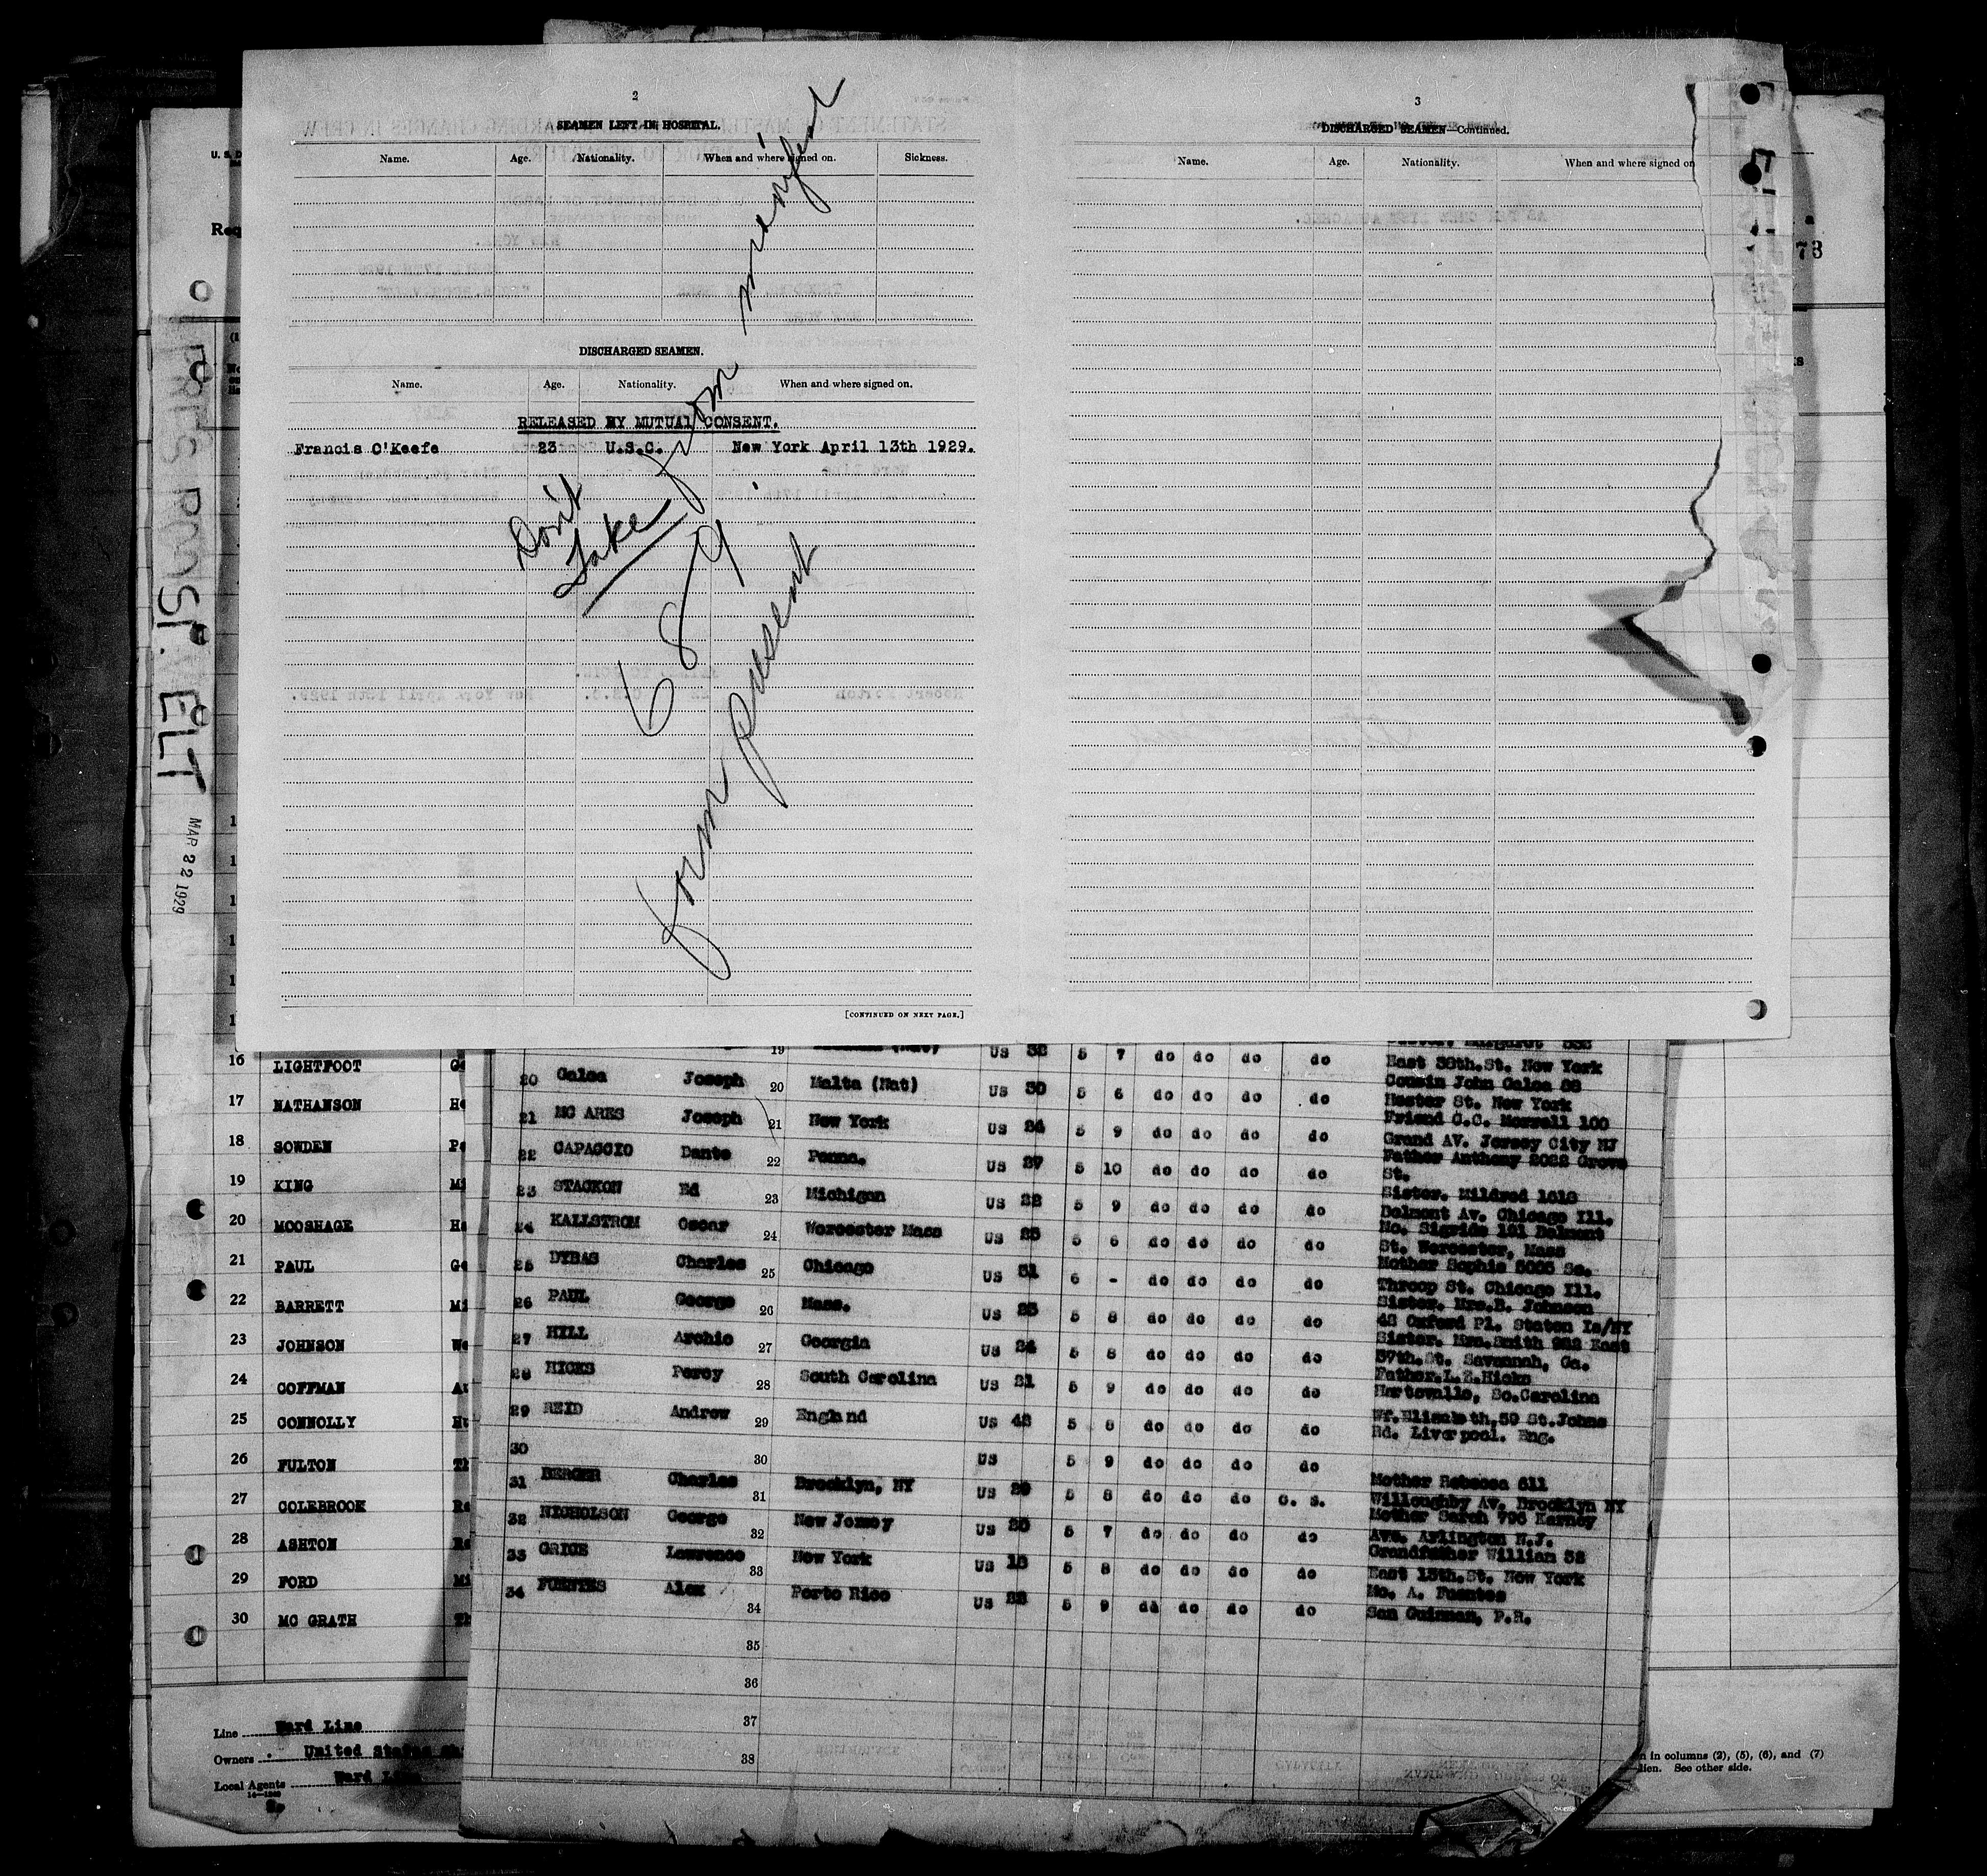 2
SEAMEN LEFT IN HOSPITAL.
Name. Age. Nationality. When and where signed on. Sickness.
DISCHARGED SEAMEN.
Name. Age. Nationality. When and where signed on.
RELEASED BY MUTUAL CONSENT.
Francis O'Keefe 23 U.S.C. New York April 13th 1929.
Don't
Take from
689
form present
[CONTINUED ON NEXT PAGE.]
3
DISCHARGED SEAMEN—Continued.
Name. Age. Nationality. When and where signed on
U. S. D
Req
73
SI. ELT
MAR 22 1929
16 LIGHTFOOT
17 NATHANSON
18 SOWDEN
19 KING
20 MOOSHAGE
21 PAUL
22 BARRETT
23 JOHNSON
24 COFFMAN
25 CONNOLLY
26 FULTON
27 COLEBROOK
28 ASHTON
29 FORD
30 MC GRATH
Line Ward Line
Owners United States
Local Agents Ward
19 US 32 5 7 do do do do East 38th.St. New York
20 Galea Joseph 20 Malta (Nat) US 30 5 6 do do do do Cousin John Galea 88
Hester St. New York
21 MC ARES Joseph 21 New York US 24 5 9 do do do do Friend C.C. Morrell 100
Grand AV. Jersey City NJ
22 CAPAGGIO Dante 22 Penna. US 27 5 10 do do do do Father Anthony 2022 Grove
St.
23 STACKON Ed 23 Michigan US 22 5 9 do do do do Sister. Mildred 1610
Belmont Av. Chicago Ill.
24 KALLSTROM Oscar 24 Worcester Mass US 25 5 6 do do do do Mo. Sigrida 191 Belmont
St. Worcester, Mass
25 DYBAS Charles 25 Chicago US 31 6 - do do do do Mother Sophie 5025 So.
Throop St. Chicago Ill.
26 PAUL George 26 Mass. US 23 5 8 do do do do Sister. Mrs.B. Johnson
48 Oxford Pl. Staten Is/NY
27 HILL Archie 27 Georgia US 24 5 8 do do do do Sister. Mrs.Smith 922 East
37th.St. Savannah, Ga.
28 HICKS Percy 28 South Carolina US 21 5 9 do do do do Father.L.E.Hicks
Hartsvalle, So.Carolina
29 REID Andrew 29 England US 42 5 8 do do do do Wf.Elizabeth,59 St.Johns
Rd. Liverpool. Eng.
30 30 US 5 9 do do do do
31 BERGER Charles 31 Brooklyn, NY US 29 5 8 do do do O. S. Mother Rebecca 611
Willoughby Av. Brooklyn NY
32 NICHOLSON George 32 New Jersey US 20 5 7 do do do do Mother Sarah 796 Karney
Ave. Arlington N.J.
33 GRICE Lawrence 33 New York US 18 5 8 do do do do Grandfather William 52
East 13th.St. New York
34 FUENTES Alex 34 Porto Rico US 22 5 9 do do do do Mo. A. Fuentes
San Guinman, P.R.
35
36
37
38
n in columns (2), (5), (6), and (7)
lien. See other side.